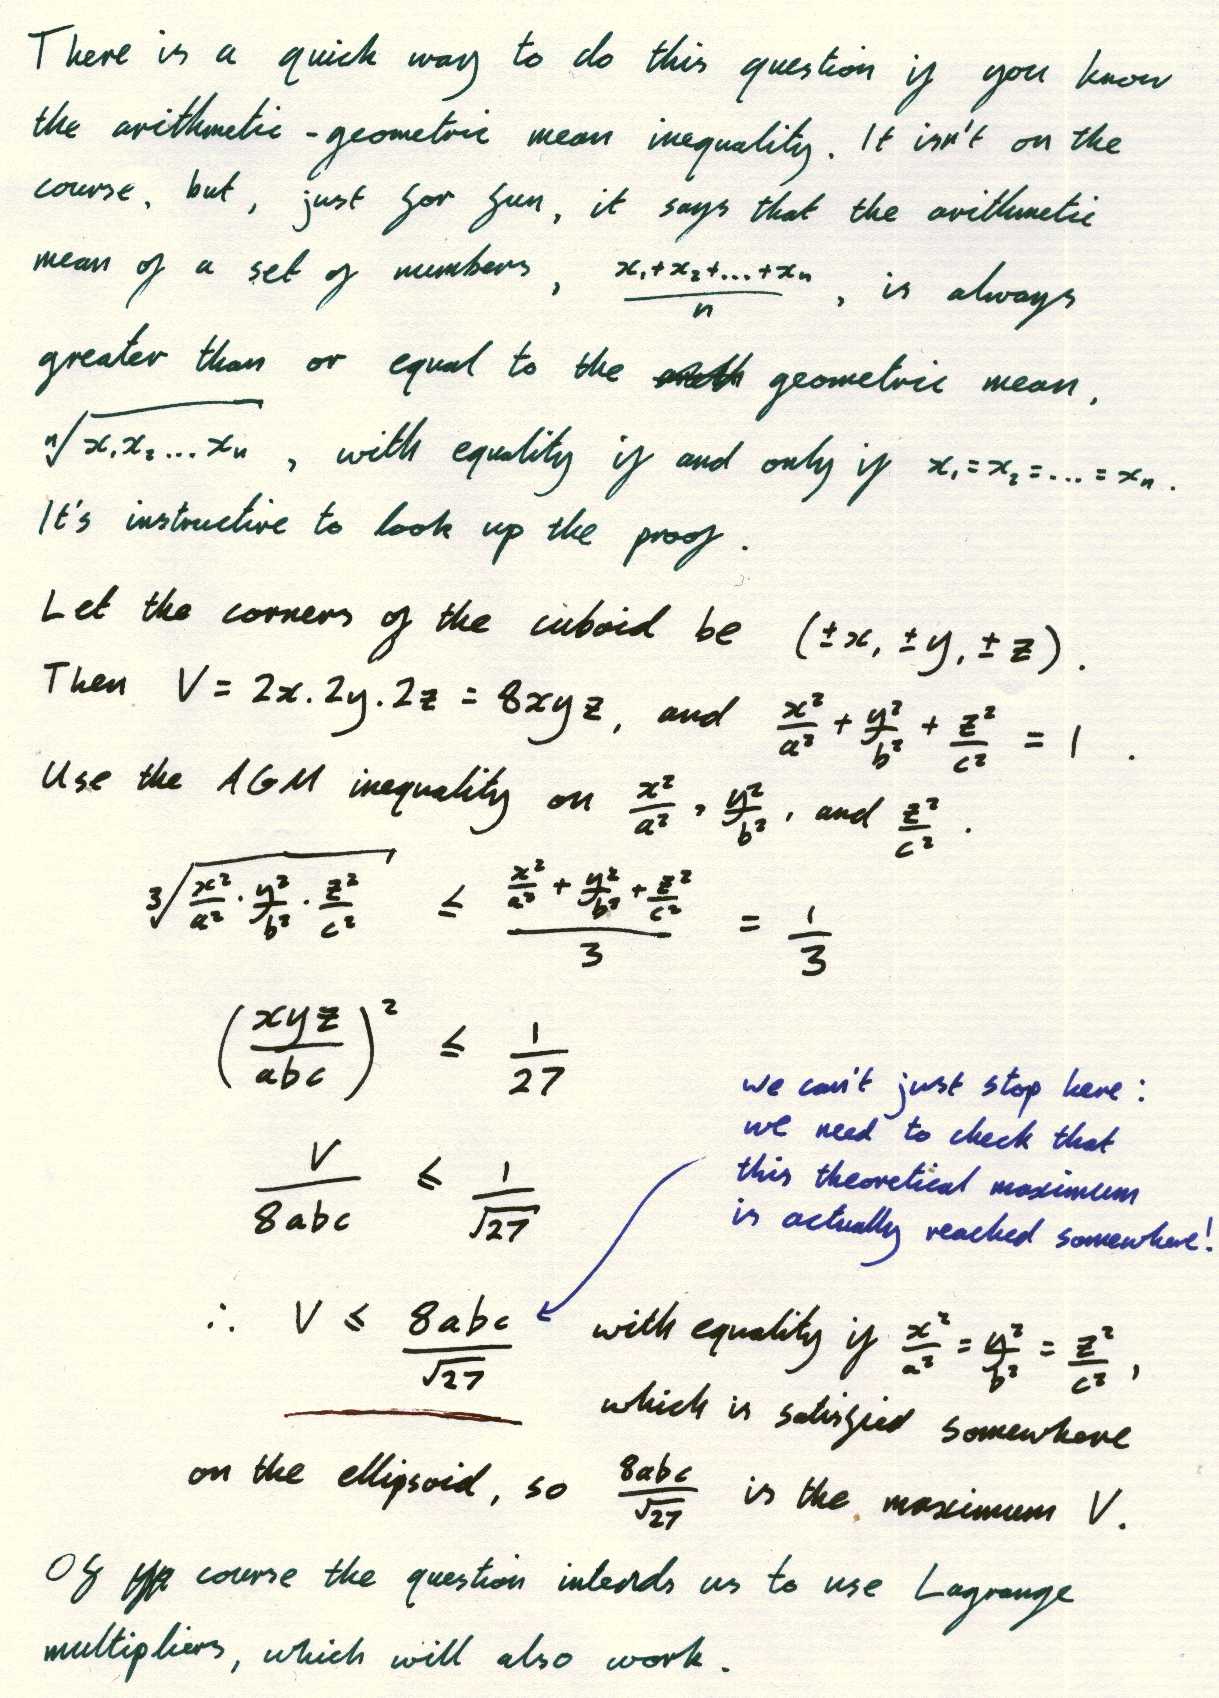 There is a quick way to do this question if you know
the arithmetic-geometric mean inequality. It isn't on the
course, but, just for fun, it says that the arithmetic
mean of a set of numbers, (x₁+x₂+...+xₙ)/n, is always
greater than or equal to the geometric mean,
ⁿ√(x₁x₂...xₙ), with equality if and only if x₁=x₂=...=xₙ.
It's instructive to look up the proof.
Let the corners of the cuboid be (±x, ±y, ±z).
Then V = 2x.2y.2z = 8xyz, and x²/a² + y²/b² + z²/c² = 1.
Use the AGM inequality on x²/a², y²/b², and z²/c².
³√(x²/a² · y²/b² · z²/c²) ≤ (x²/a² + y²/b² + z²/c²)/3 = 1/3
(xyz/abc)² ≤ 1/27
we can't just stop here:
we need to check that
this theoretical maximum
is actually reached somewhere!
V/8abc ≤ 1/√27
∴ V ≤ 8abc/√27 with equality if x²/a² = y²/b² = z²/c²,
which is satisfied somewhere
on the ellipsoid, so 8abc/√27 is the maximum V.
Of course the question intends us to use Lagrange
multipliers, which will also work.